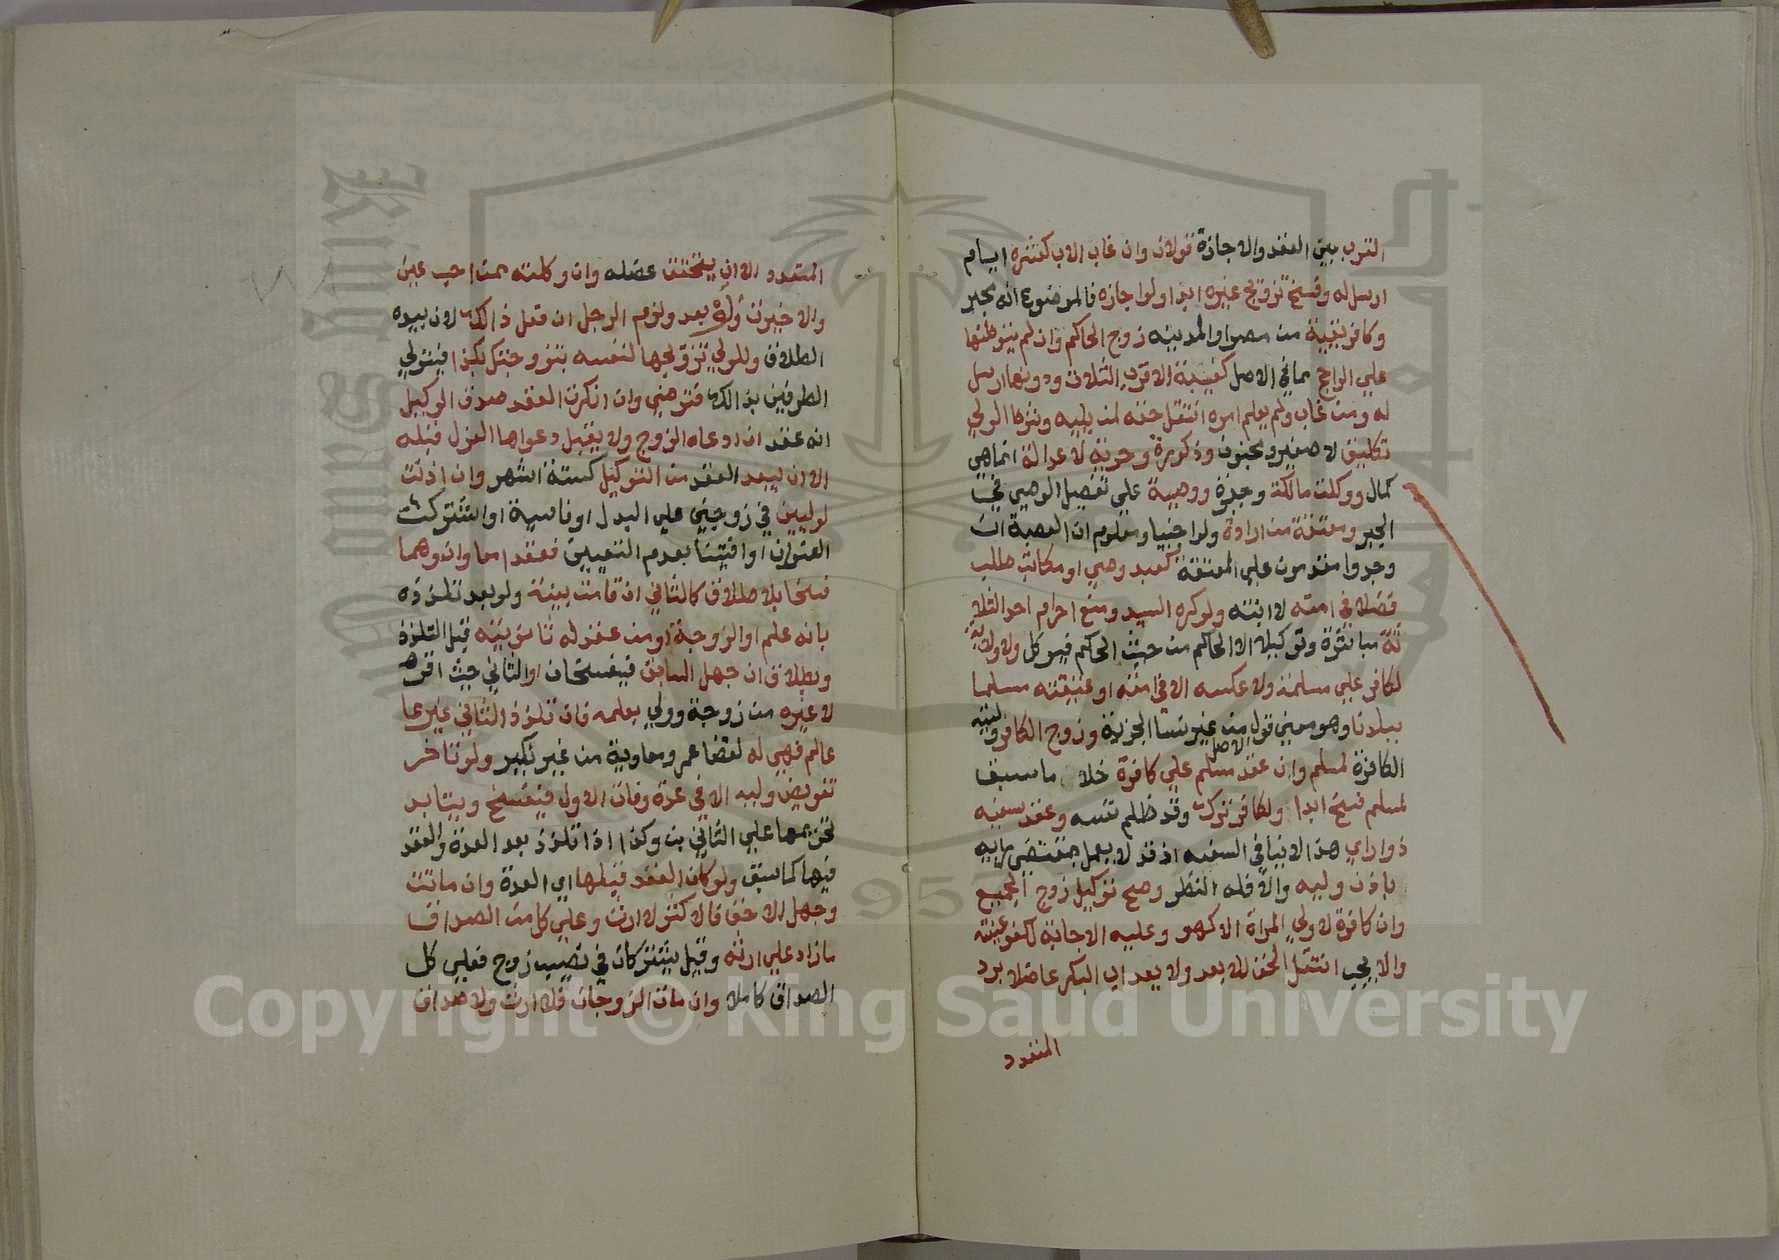 القرب بين العقد والاجازة قولان وان غاب الاب كعشرة ايام
ارسل له وفسخ تزويج غيره ابدا ولو اجازه فالموضوع انه يجبر
وكافريقية من مصر او المدينة زوج الحاكم وان لم يتوطنها
علي الراجح مما في الاصل كغيبة الاقرب الثلاث ودونها ارسل
له ومن غاب ولم يعلم امره انتقل حقه لمن يليه وشرط الولي
تكليف لا صغير ومجنون وذكورة وحرية لا عدالة انما هي
كمال ووكلت مالكة وجدة ووصية علي تفصيل الوصي في
الجبر ومعتقة من ارادة ولو اجنبيا ومعلوم ان العصبة ان
وجدوا مقدمون علي المعتقة كعبد وصي او مكاتب طلب
فضلا في امته لا ابنته ولو كره السيد ومنع احرام احد الثلا
ثة مباشرة وتوكيلا الا الحاكم من حيث الحاكم فيوكل ولا ولاية
لكافر علي مسلمة ولا عكسه الا في امته او عتيقته مسلما
ببلدنا وهو معني قول الاصل من غير نسا الجزية وزوج الكافر وليته
الكافرة لمسلم وان عقد مسلم علي كافرة خلاف ما سبق
لمسلم فسخ ابدا ولكافر ترك وقد ظلم نفسه وعقد سفيه
ذو اراي هذا لا ينافي السفه اذ قد لا يعمل بمقتضي رايه
باذن وليه والا فله النظر وصح توكيل زوج الجميع
وان كافرة لا ولي المراة الا كهو وعليه الاجابة لكفو عينته
والا يجب انتقل الحق للابعد ولا يعد اب البكر عاضلا برد
المتعدد
المتعدد الا ان يتحقق عضله وان وكلته ممن احب عين
والا خيرت ولو بعد ولزم الرجل ان فعل ذالك لان بيده
الطلاق وللولي تزويجها لنفسه بتزوجتك بكذا فيتولي
الطرفين بذالك فترضي وان انكرت العقد صدق الوكيل
انه عقد ان ادعاه الزوج ولا يقبل دعواها العزل قبله
الا ان يبعد العقد من التوكيل كستة اشهر وان اذنت
لوليين في زوجين علي البدل او ناسية او اشتركت
العنوان او افتيتنا بعدم التعيين فعقدا معا وان وهما
فسخا بلا طلاق كالثاني ان قامت بينة ولو بعد تلذذه
بانه علم او الزوجة او من عقد له ثانو بينه قبل التلذذ
وبطلاق ان جهل السابق فيفسخان او الثاني حيث اقر هو
لا غيره من زوجة وولي بعلمه فان تلذذ الثاني غير عا
عالم فهي له لقضا عمر ومعاوية من غير نكير ولو تاخر
تفويض وليه الا في عدة وفات الاول فيفسخ ويتابد
تحريمها علي الثاني بت وكذا اذا تلذذ بعد العدة والعقد
فيها كما سبق ولو كان العقد قبلها اي العدة وان ماتت
وجهل الاحق فالاكثر لا ارث وعلي كل من الصداق
ما زاد علي ارثه وقيل يشتركان في نصيب زوج فعلي كل
الصداق كاملا وان مات الزوجان فلا ارث ولا صداق
Copyright © King Saud University
King Saud University
جامعة الملك سعود